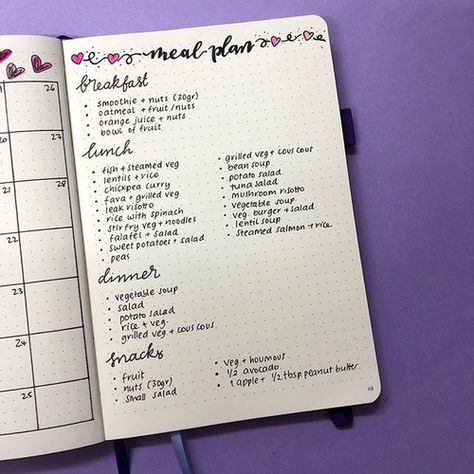 meal plan
breakfast
• smoothie + nuts (30gr)
• oatmeal + fruit/nuts
• orange juice + nuts
• bowl of fruit
lunch
• fish + steamed veg
• lentils + rice
• chickpea curry
• fava + grilled veg
• leak risotto
• rice with spinach
• stir fry veg + noodles
• falafel + salad
• sweet potatoes + salad
• peas
• grilled veg + cous cous
• bean soup
• potato salad
• tuna salad
• mushroom risotto
• vegetable soup
• veg. burger + salad
• lentil soup
• steamed salmon + rice
dinner
• vegetable soup
• salad
• potato salad
• rice + veg.
• grilled veg + cous cous
snacks
• fruit
• nuts (30gr)
• small salad
• veg + houmous
• 1/2 avocado
• 1 apple + 1/2 tbsp peanut butter
48
26
21
27
28
22
29
23
30
24
25